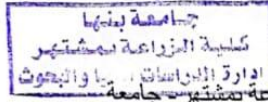 جامعة بنها
كلية الزراعة بمشتهر
إدارة الدراسات العليا والبحوث
بمشتهر جامعة